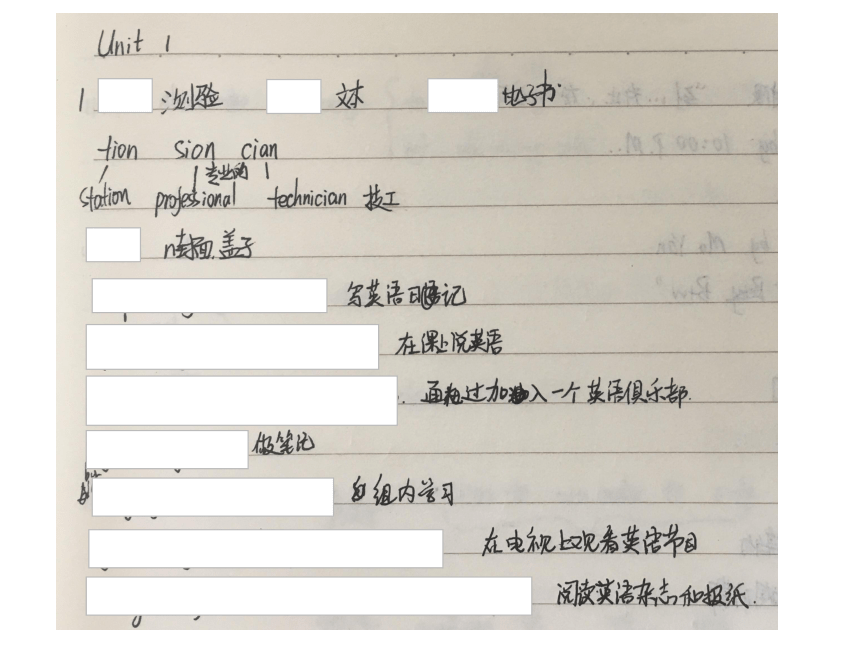 Unit 1
1 测验 文本 电子书
tion sion cian
专业的
station professional technician 技工
n封面.盖子
写英语日记
在课上说英语
通过加入一个英语俱乐部.
做笔记
组内学习
在电视上观看英语节目
阅读英语杂志和报纸.